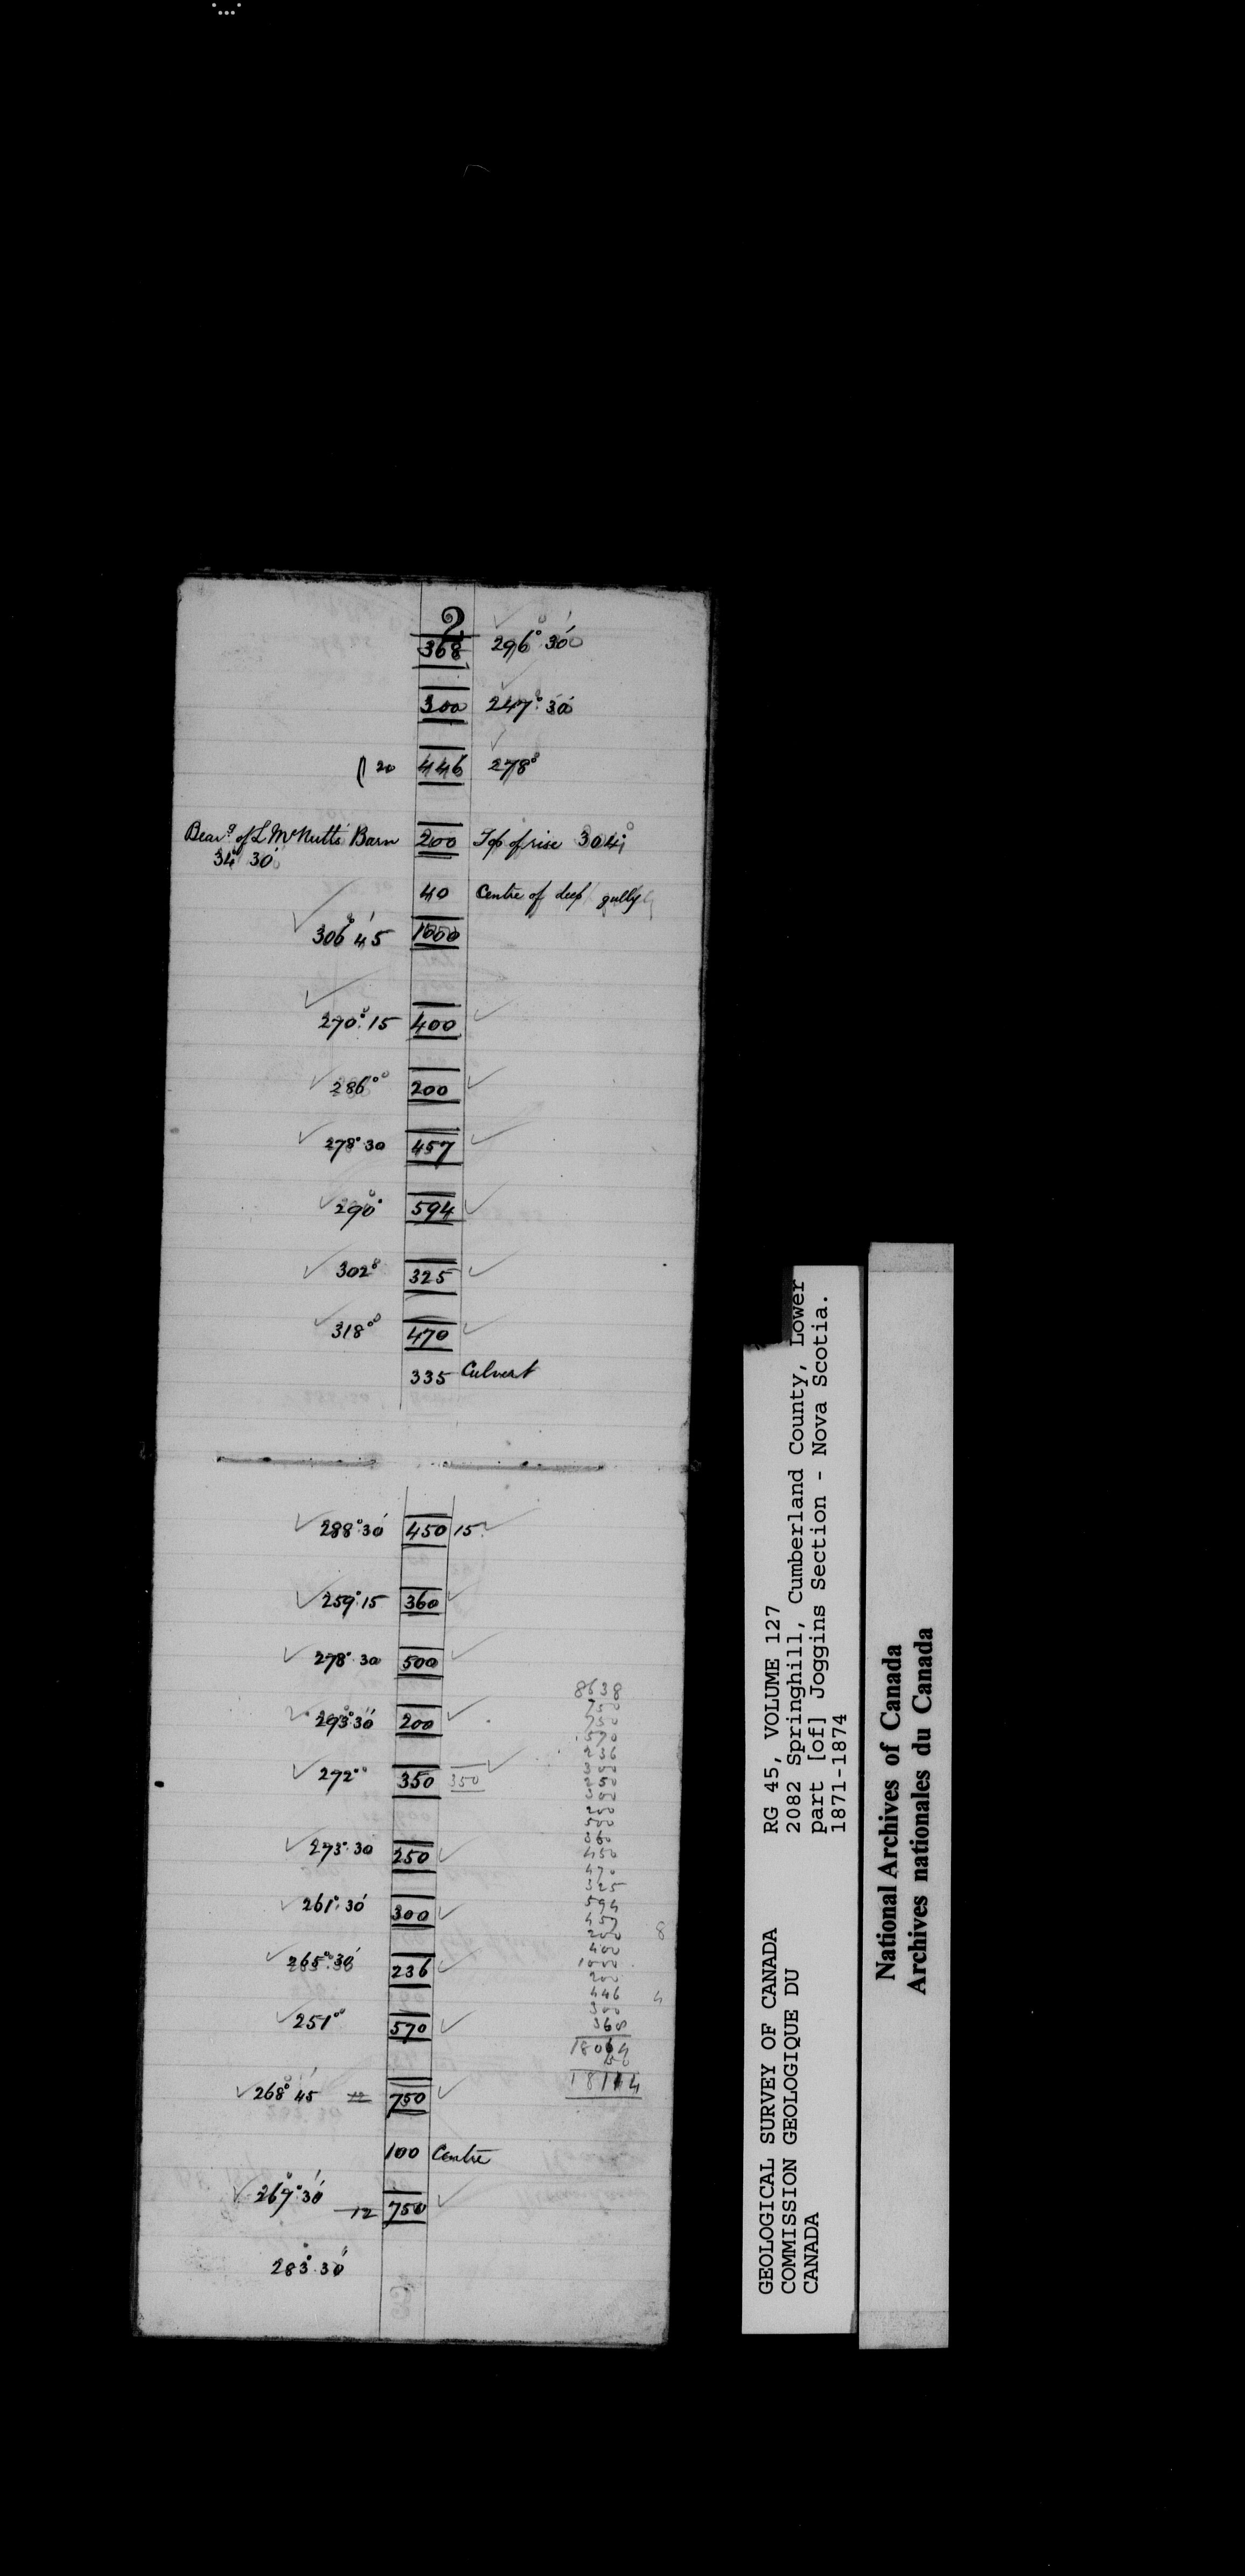 2
368 296° 30'
300 247° 30'
20 446 278°
Bear.g of L McNutts Barn 200 Top of rise 304°
34° 30'
40 Centre of deep gully
306° 45' 1000
270° 15 400
286° 200
278° 30 457
290° 594
302° 325
318° 470
335 Culvert
288° 30' 450 15
259° 15 360
278° 30 500
293° 30' 200
292° 350 350
273° 30 250
261° 30' 300
265° 30' 236
251° 570
268° 45' 750
100 Centre
269° 30' 12 750
283° 30'
8638
750
750
570
236
300
250
350
200
500
360
450
470
325
594
457
200
8
400
1000
200
446
4
300
368
18064
50
18114
RG 45, VOLUME 127
2082 Springhill, Cumberland County, Lower
part [of] Joggins Section - Nova Scotia.
1871-1874
GEOLOGICAL SURVEY OF CANADA
COMMISSION GEOLOGIQUE DU
CANADA
National Archives of Canada
Archives nationales du Canada